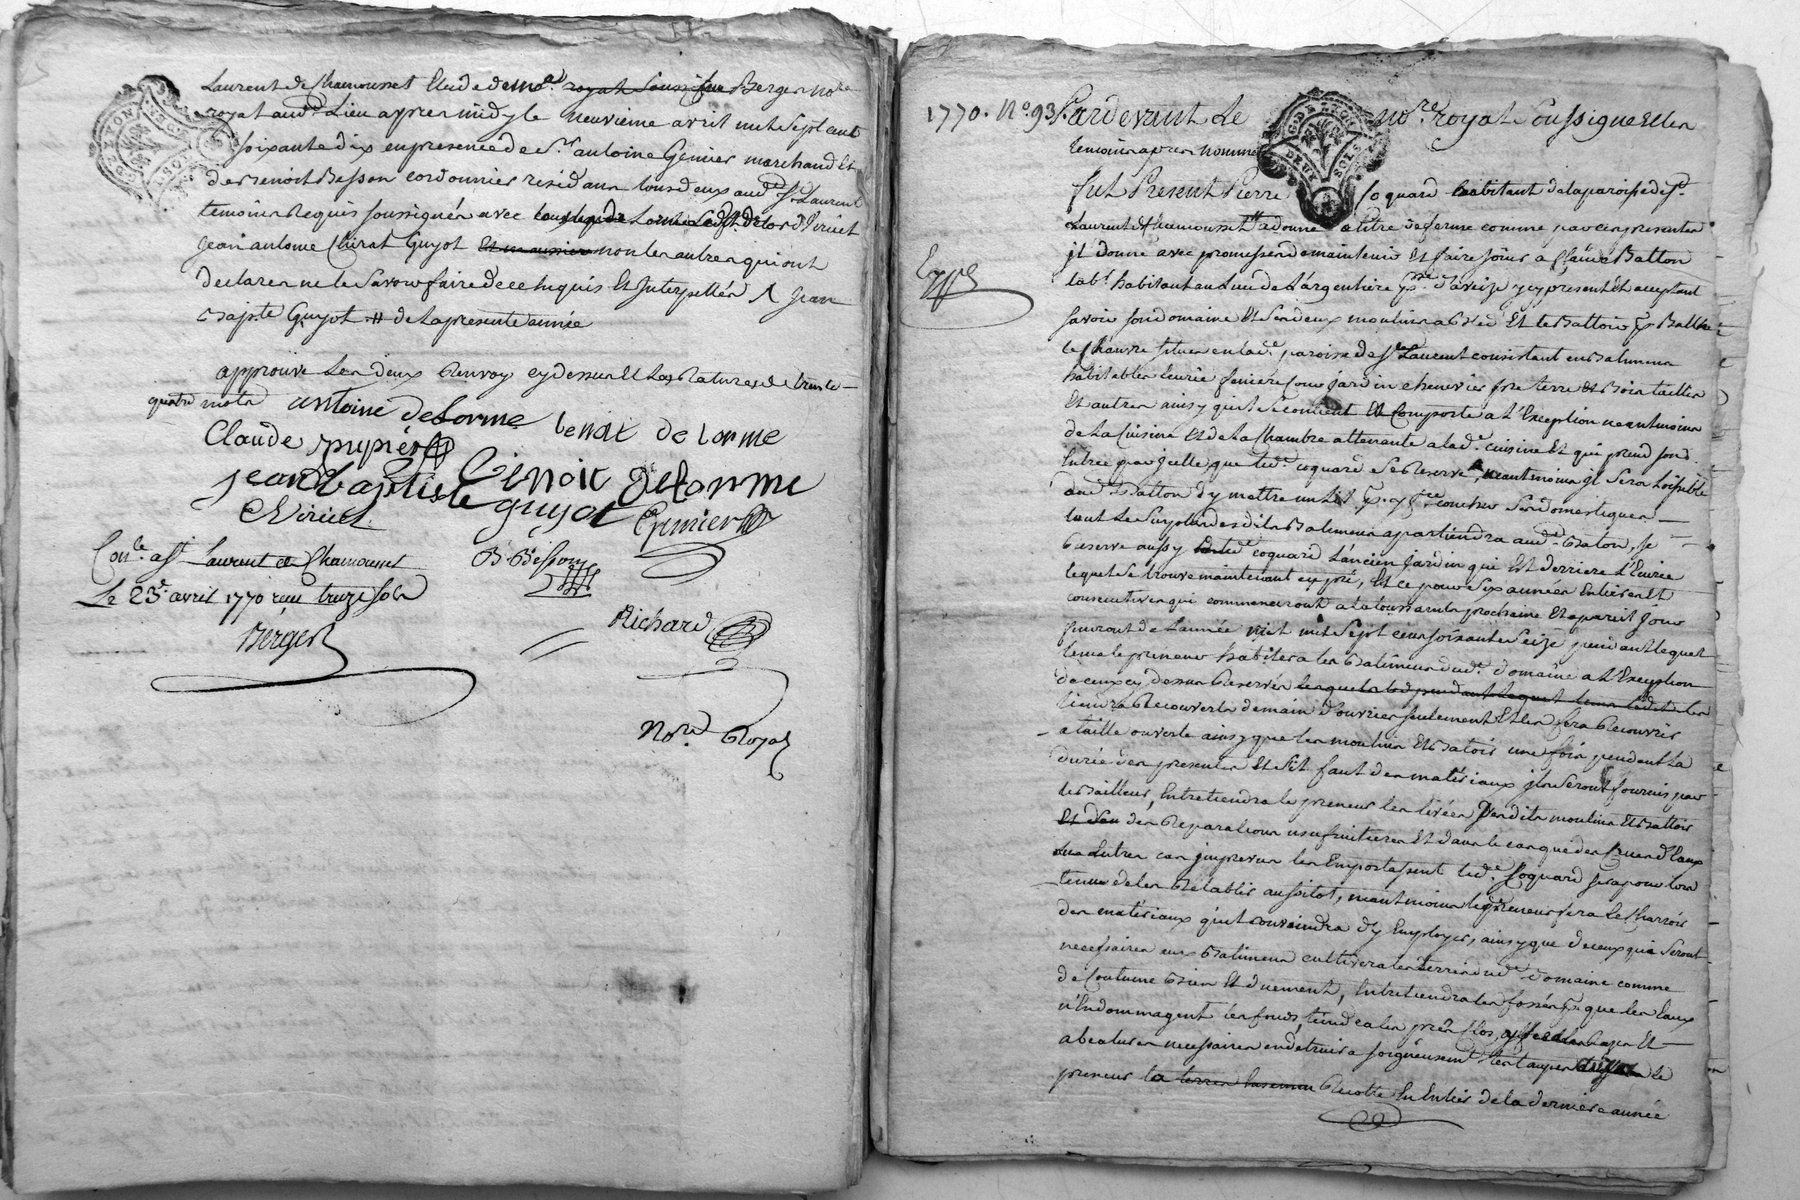 Laurent de Chamousset Etude de me. royal soussigné Berger nore
royal aud. Lieu apres midy le neuvieme avril mil sept cent
soixante dix en presence de Sr. antoine Genier marchand Et
de Benoit Besson cordonnier residans tous deux aud. St. Laurent
temoins Requis soussignés avec
Jean antoine Chirat Guyot Et non les autres qui ont
declarés ne le savoir faire de ce Enquis Et Interpellés Jean
Bapte. Guyot # de la presente année
approuvé Les deux Renvoy cy dessus Et Les Ratures de trente
quatre mots antoine delorme benoit delorme
Claude pupier
jean baptiste guyot benoit delorme
C Viricel Grenier
Con.le a St. Laurent de Chamousset B. Besson
Le 23e. avril 1770 reçu treize sols
Berger
Richard
Nore. Royal
1770. No. 93. Pardevant Le nore. royal soussigné Et les
temoins apres nommés
fut Present Pierre Coquard habitant de la paroisse de St.
Laurent de chamousset Lt. a donné a titre de ferme comme par ces presentes
il donne avec promesse de maintenir Et faire joüir a Claude Batton
labr. habitant au Lieu de L'argentiere psse. d'aveize cy present Et acceptant
savoir son domaine Et ses deux moulins a Bled Et le Battoir pr. Battre
le Chanvre situés en lad. paroisse de St. Laurent consistant en Batimens
habitables Ecurie feniere cour jardin chenevier pré terre Et Bois taillis
Et autres ainsy qu'il se contient Et Comporte a L'Exception neantmoins
de La Cuisine Et de La Chambre attenante a lad. cuisine Et qui prend son
Entrée par jcelle, que led. coquard se Reserve, neantmoins il sera Loisible
aud. Batton d'y mettre un Lit pr. y fre. coucher ses domestiques
tout Le Surplus desdits Batimens apartiendra aud. Baton, se
Reserve aussy led. coquard L'ancien jardin qui Est derriere L'Ecurie
lequel se trouve maintenant en pré, Et ce pour six années Entieres Et
consecutives qui commenceront a la toussaints prochaine Et a pareil jour
finiront de L'année mil sept cent soixante Seize pendant lequel
tems le preneur habitera les Batimens dud. domaine a L'Exception
de ceux cy dessus Reservés
tiendra Recouverts de main d'ouvrier seulement Et les fera Recouvrir
a taille ouverte ainsy que les moulins Et Batoir une fois pendant La
durée des presentes Et s'il faut des matériaux ils seront fournis par
le Bailleur, Entretiendra le preneur les Levées desdits moulins Et Battoir
Et des Reparations usufruitieres Et dans le cas que des Cruës d'Eaux
ou autres cas imprevus les Emportassent led. Coquard sera pour lors
tenu de les Rétablir aussitot, neantmoins le preneur fera Le Charroir
des matériaux qu'il conviendra d'y Employer, ainsy que de ceux qui seront
necessaires aux Batimens cultivera les terres dud. domaine comme
de Coutume Bien Et duement, Entretiendra les fossés pr. que les Eaux
n'Endommagent les fonds, tiendra les prés clos, Et
abeatures necessaires en detruira soigneusement les taupes le
preneur Recolte En Entier de la derniere année